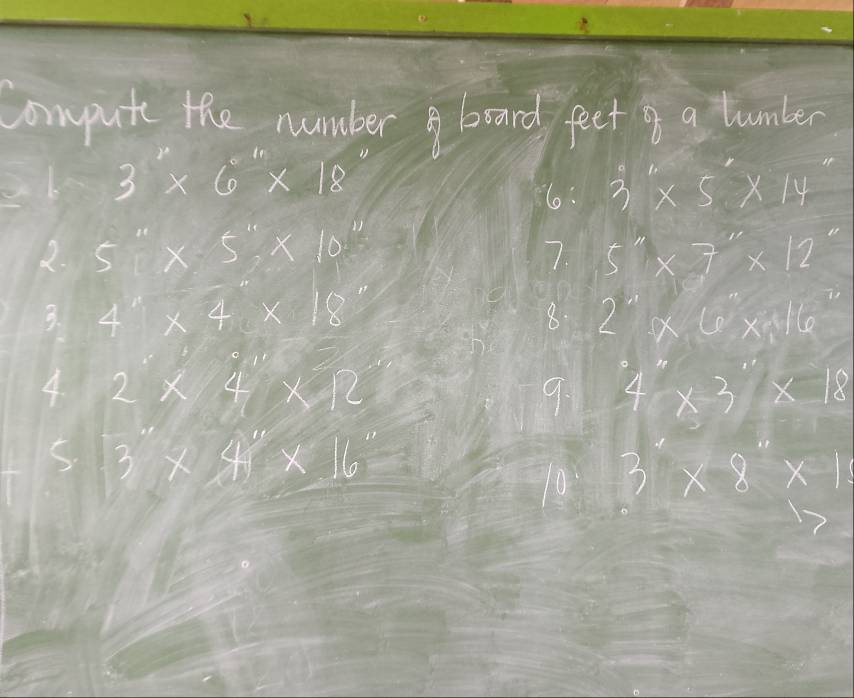 Compute the number of board feet of a lumber
1. 3" x 6" x 18"
2. 5" x 5" x 10"
3. 4" x 4" x 18"
4. 2" x 4" x 12"
5. 3" x 4" x 16"
6. 3" x 5" x 14"
7. 5" x 7" x 12"
8. 2" x 6" x 16"
9. 4" x 3" x 18
10. 3" x 8" x